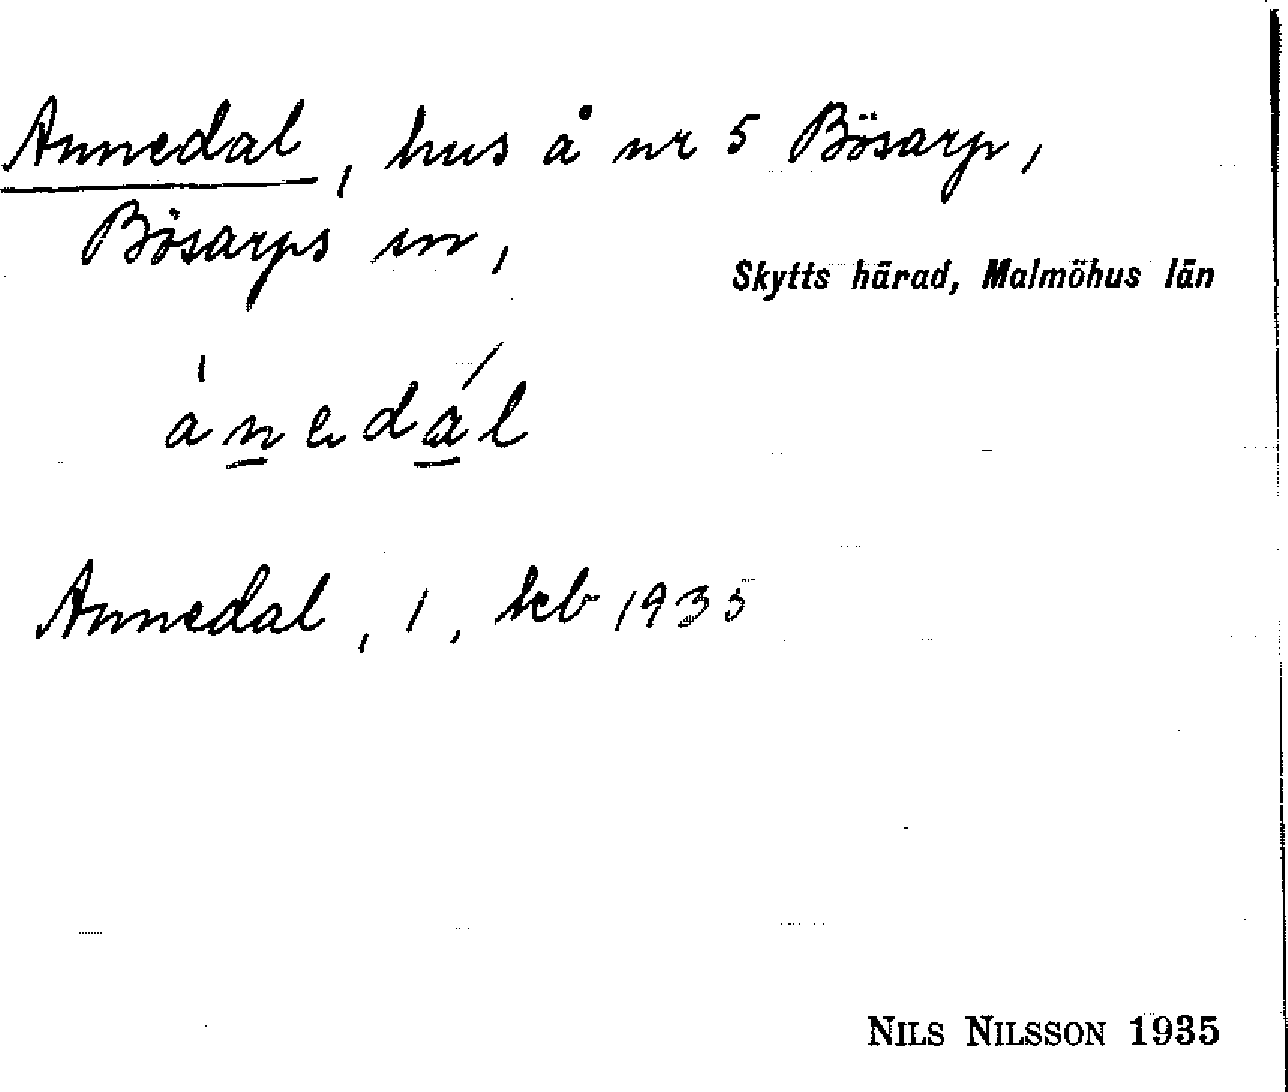 Annedal, hus å nr 5 Bösarp,
Bösarps sn,
Skytts härad, Malmöhus län
ánedál
Annedal, 1, kb 1935
NILS NILSSON 1935